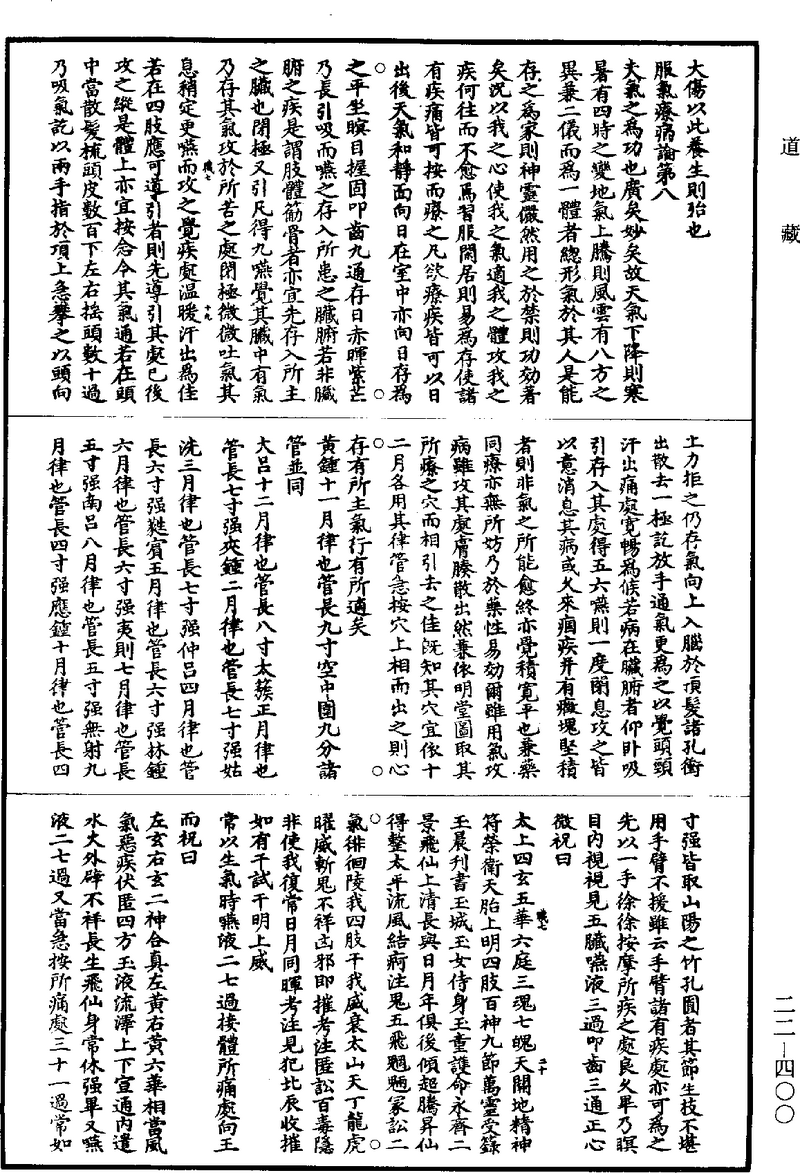 道藏
大傷以此養生則殆也
服氣療病論第八
夫氣之為功也廣矣妙矣故天氣下降則寒
暑有四時之變地氣上騰則風雲有八方之
異兼二儀而為一體者總形氣於其人是能
存之為家則神靈儼然用之於禁則功効著
矣況以我之心使我之氣適我之體攻我之
疾何往而不愈焉習服閑居則易為存使諸
有疾痛皆可按而療之凡欲療疾皆可以日
出後天氣和靜面向日在室中亦向日存為
之平坐瞑目握固叩齒九通存日赤暉紫芒
乃長引吸而嚥之存入所患之臟腑若非臟
腑之疾是謂肢體筋骨者亦宜先存入所主
之臟也閉極又引凡得九嚥覺其臟中有氣
乃存其氣攻於所苦之處閉極微微吐氣其
息稍定更嚥而攻之覺疾處温暖汗出為佳
若在四肢應可導引者則先導引其處已後
攻之縱是體上亦宜按念令其氣通若在頭
中當散髮梳頭皮數百下左右搖頭數十過
乃吸氣訖以兩手指於項上急攀之以頭向
上力拒之仍存氣向上入腦於頂髮諸孔衝
出散去一極訖放手通氣更為之以覺頭頸
汗出痛處寬暢為候若病在臟腑者仰卧吸
引存入其處得五六嚥則一度閉息攻之皆
以意消息其病或久來痼疾并有癥塊堅積
者則非氣之所能愈終亦覺積寬平也兼藥
同療亦無所妨乃於藥性易効爾雖用氣攻
病雖攻其處膚腠散出然兼依明堂圖取其
所療之穴而相引去之佳既知其穴宜依十
二月各用其律管急按穴上相而出之則心
存有所主氣行有所適矣
黃鍾十一月律也管長九寸空中圍九分諸
管並同
大呂十二月律也管長八寸太蔟正月律也
管長七寸强夾鍾二月律也管長七寸强姑
洗三月律也管長七寸强仲呂四月律也管
長六寸强蕤賓五月律也管長六寸强林鍾
六月律也管長六寸强夷則七月律也管長
五寸强南呂八月律也管長五寸强無射九
月律也管長四寸强應鍾十月律也管長四
寸强皆取山陽之竹孔圓者其節生枝不堪
用手臂不援雖云手臂諸有疾處亦可為之
先以一手徐徐按摩所疾之處良久畢乃瞑
目內視視見五臟嚥液三過叩齒三通正心
微祝曰
太上四玄五華六庭三魂七魄天關地精神
符榮衛天胎上明四肢百神九節萬靈受錄
玉晨刊書玉城玉女侍身玉童護命永齊二
景飛仙上清長與日月年俱後傾超騰昇仙
得整太平流風結痾注鬼五飛魍魎冢訟二
氣徘徊陵我四肢干我盛衰太山天丁龍虎
曜威斬鬼不祥凶邪即摧考注匿訟百毒隱
非使我復常日月同暉考注見犯北辰收摧
如有干試干明上威
常以生氣時嚥液二七過按體所痛處向王
而祝曰
左玄右玄二神合真左黃右黃六華相當風
氣惡疾伏匿四方玉液流澤上下宣通內遣
水火外辟不祥長生飛仙身常休强畢又嚥
液二七過又當急按所痛處三十一過常如
二二—四〇〇